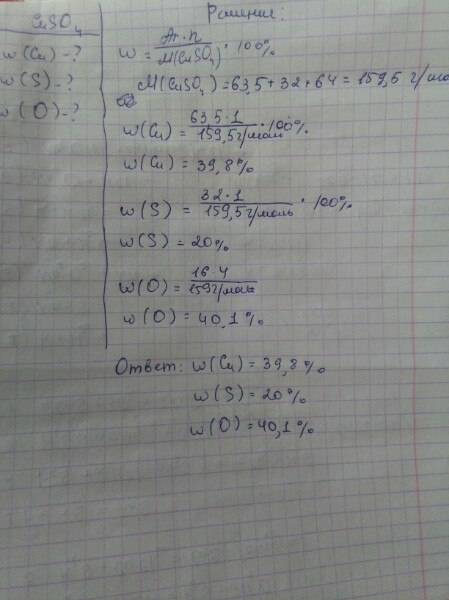 CuSO₄
w(Cu) - ?
w(S) - ?
w(O) - ?
Решение:
w = Ar·n / M(CuSO₄) · 100%
M(CuSO₄) = 63,5 + 32 + 64 = 159,5 г/мо
w(Cu) = 63,5·1 / 159,5 г/моль · 100%
w(Cu) = 39,8%
w(S) = 32·1 / 159,5 г/моль · 100%
w(S) = 20%
w(O) = 16·4 / 159 г/моль
w(O) = 40,1%
Ответ: w(Cu) = 39,8%
w(S) = 20%
w(O) = 40,1%